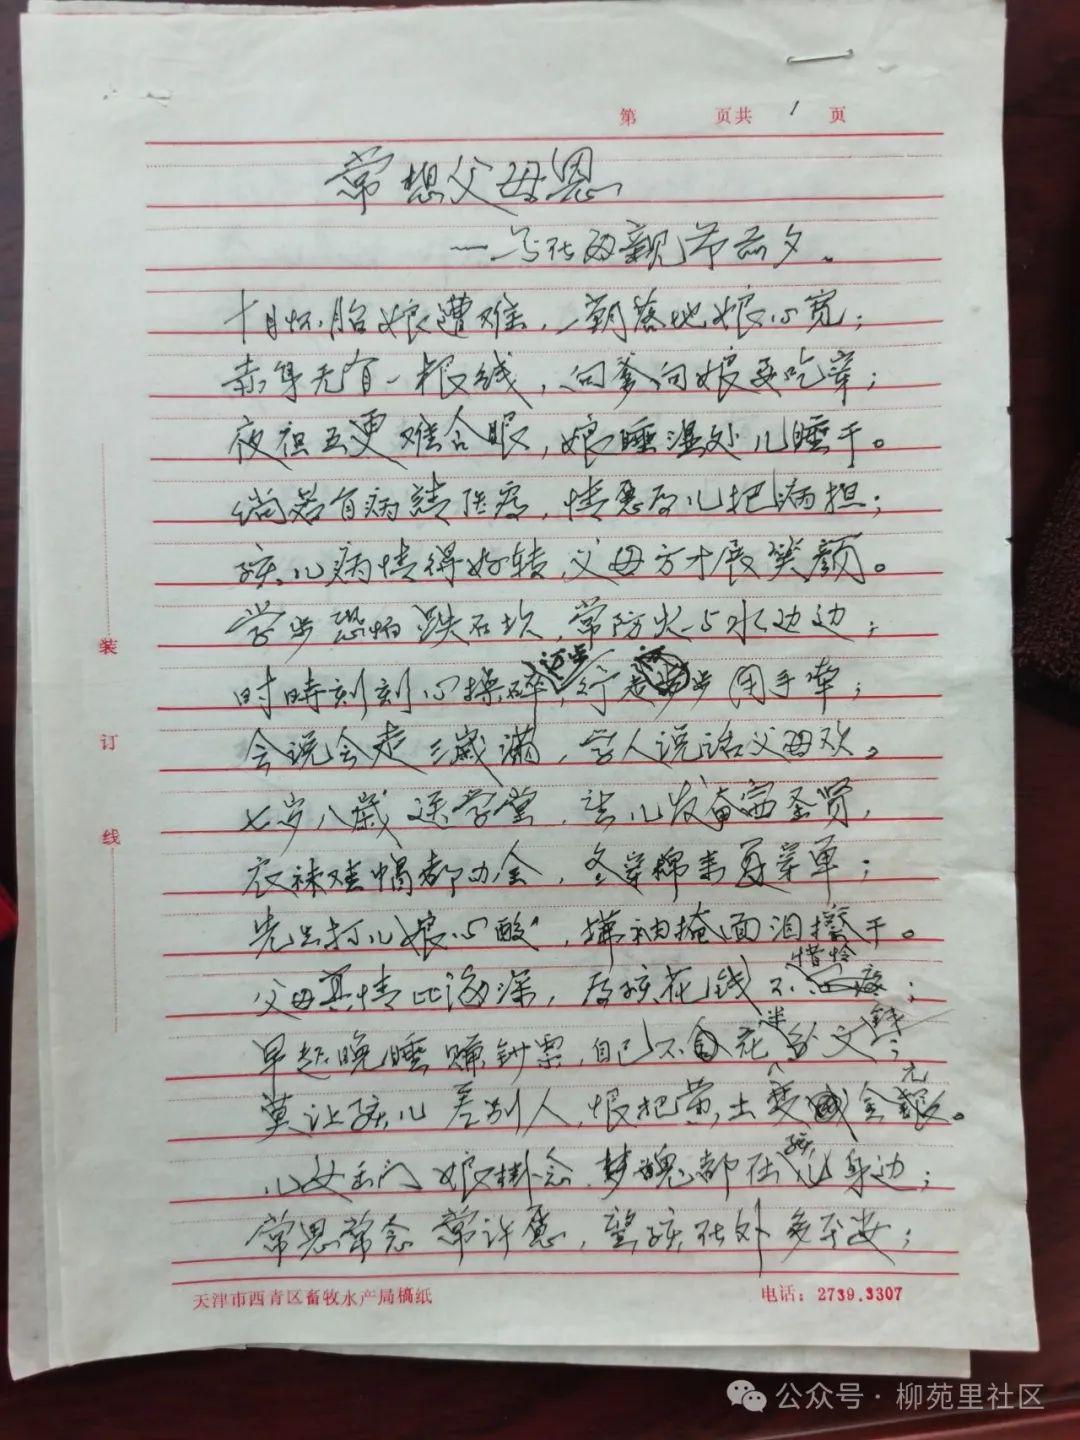 第 页共 1 页
常想父母恩
——写在母亲节前夕。
十月怀胎娘遭难，一朝落地娘心宽；
赤身无有一根线，向爹向娘要吃穿；
夜里五更难合眼，娘睡湿处儿睡干。
倘若有病请医疗，情愿为儿把病担；
孩儿病情得好转，父母方才展笑颜。
学步恐怕跌石坎，常防火与水边边；
时时刻刻心操碎，行走步步用手牵；
会说会走三岁满，学人说话父母欢。
七岁八岁送学堂，望儿发奋图圣贤，
衣袜鞋帽都办全，冬穿棉来夏穿单；
先生打儿娘心酸，掩面泪擦干。
惜怜
父母真情比海深，为孩花钱不；
早起晚睡赚钞票，自己不花半分文钱；
莫让孩儿差别人，恨把黄土变成金
元
儿女出门娘挂念，梦魂都在孩身边；
常思常念常许愿，望孩在外多平安；
装
订
线
天津市西青区畜牧水产局稿纸
电话：2739.3307
公众号·柳苑里社区